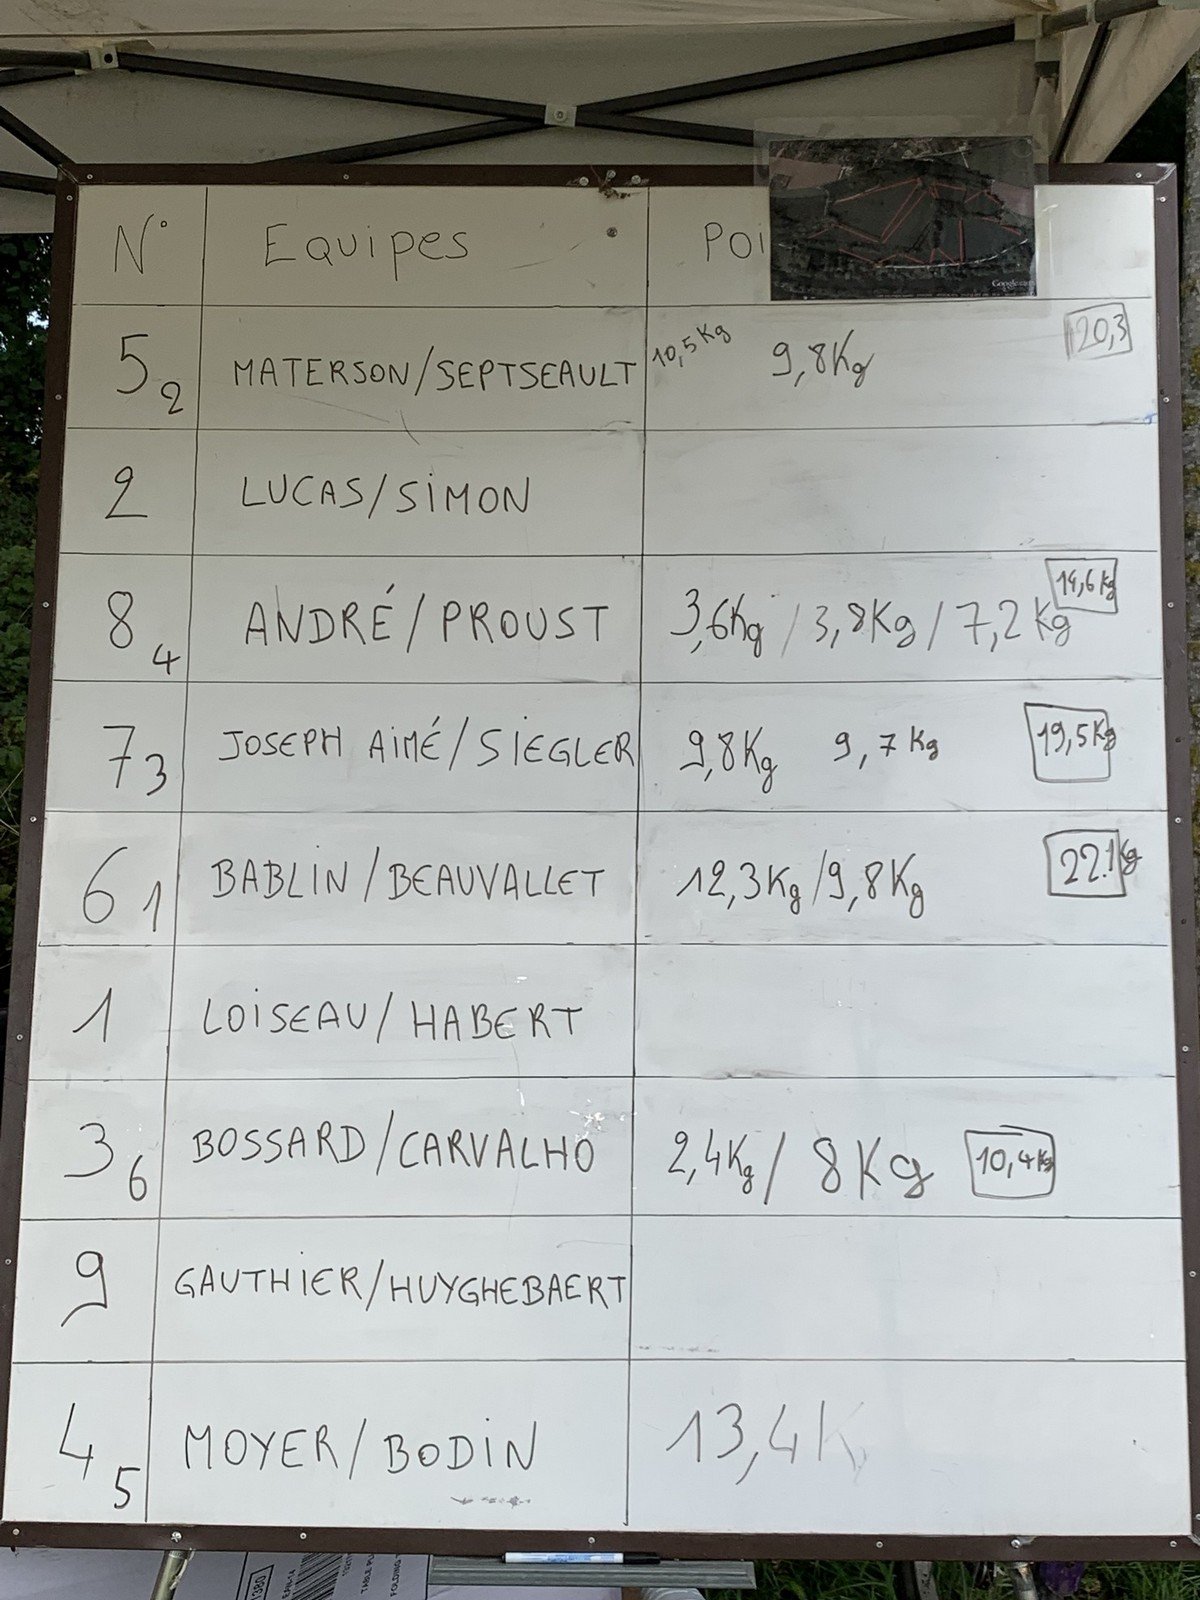 N° Equipes Poi
Google
5 2 MATERSON/SEPTSEAULT 10,5 Kg 9,8Kg 20,3
2 LUCAS/SiMON
8 4 ANDRÉ/PROUST 3,6Kg / 3,8Kg / 7,2 Kg 14,6 Kg
7 3 JOSEPH AiMÉ/SiEGLER 9,8Kg 9,7 Kg 19,5 Kg
6 1 BABLiN/BEAUVALLET 12,3Kg /9,8Kg 22.1 Kg
1 LOiSEAU/HABERT
3 6 BOSSARD/CARVALHO 2,4Kg / 8Kg 10,4 Kg
9 GAUTHiER/HUYGHEBAERT
4 5 MOYER/BODiN 13,4K
1380
EAN-14
TABLE PL
FOLDING T